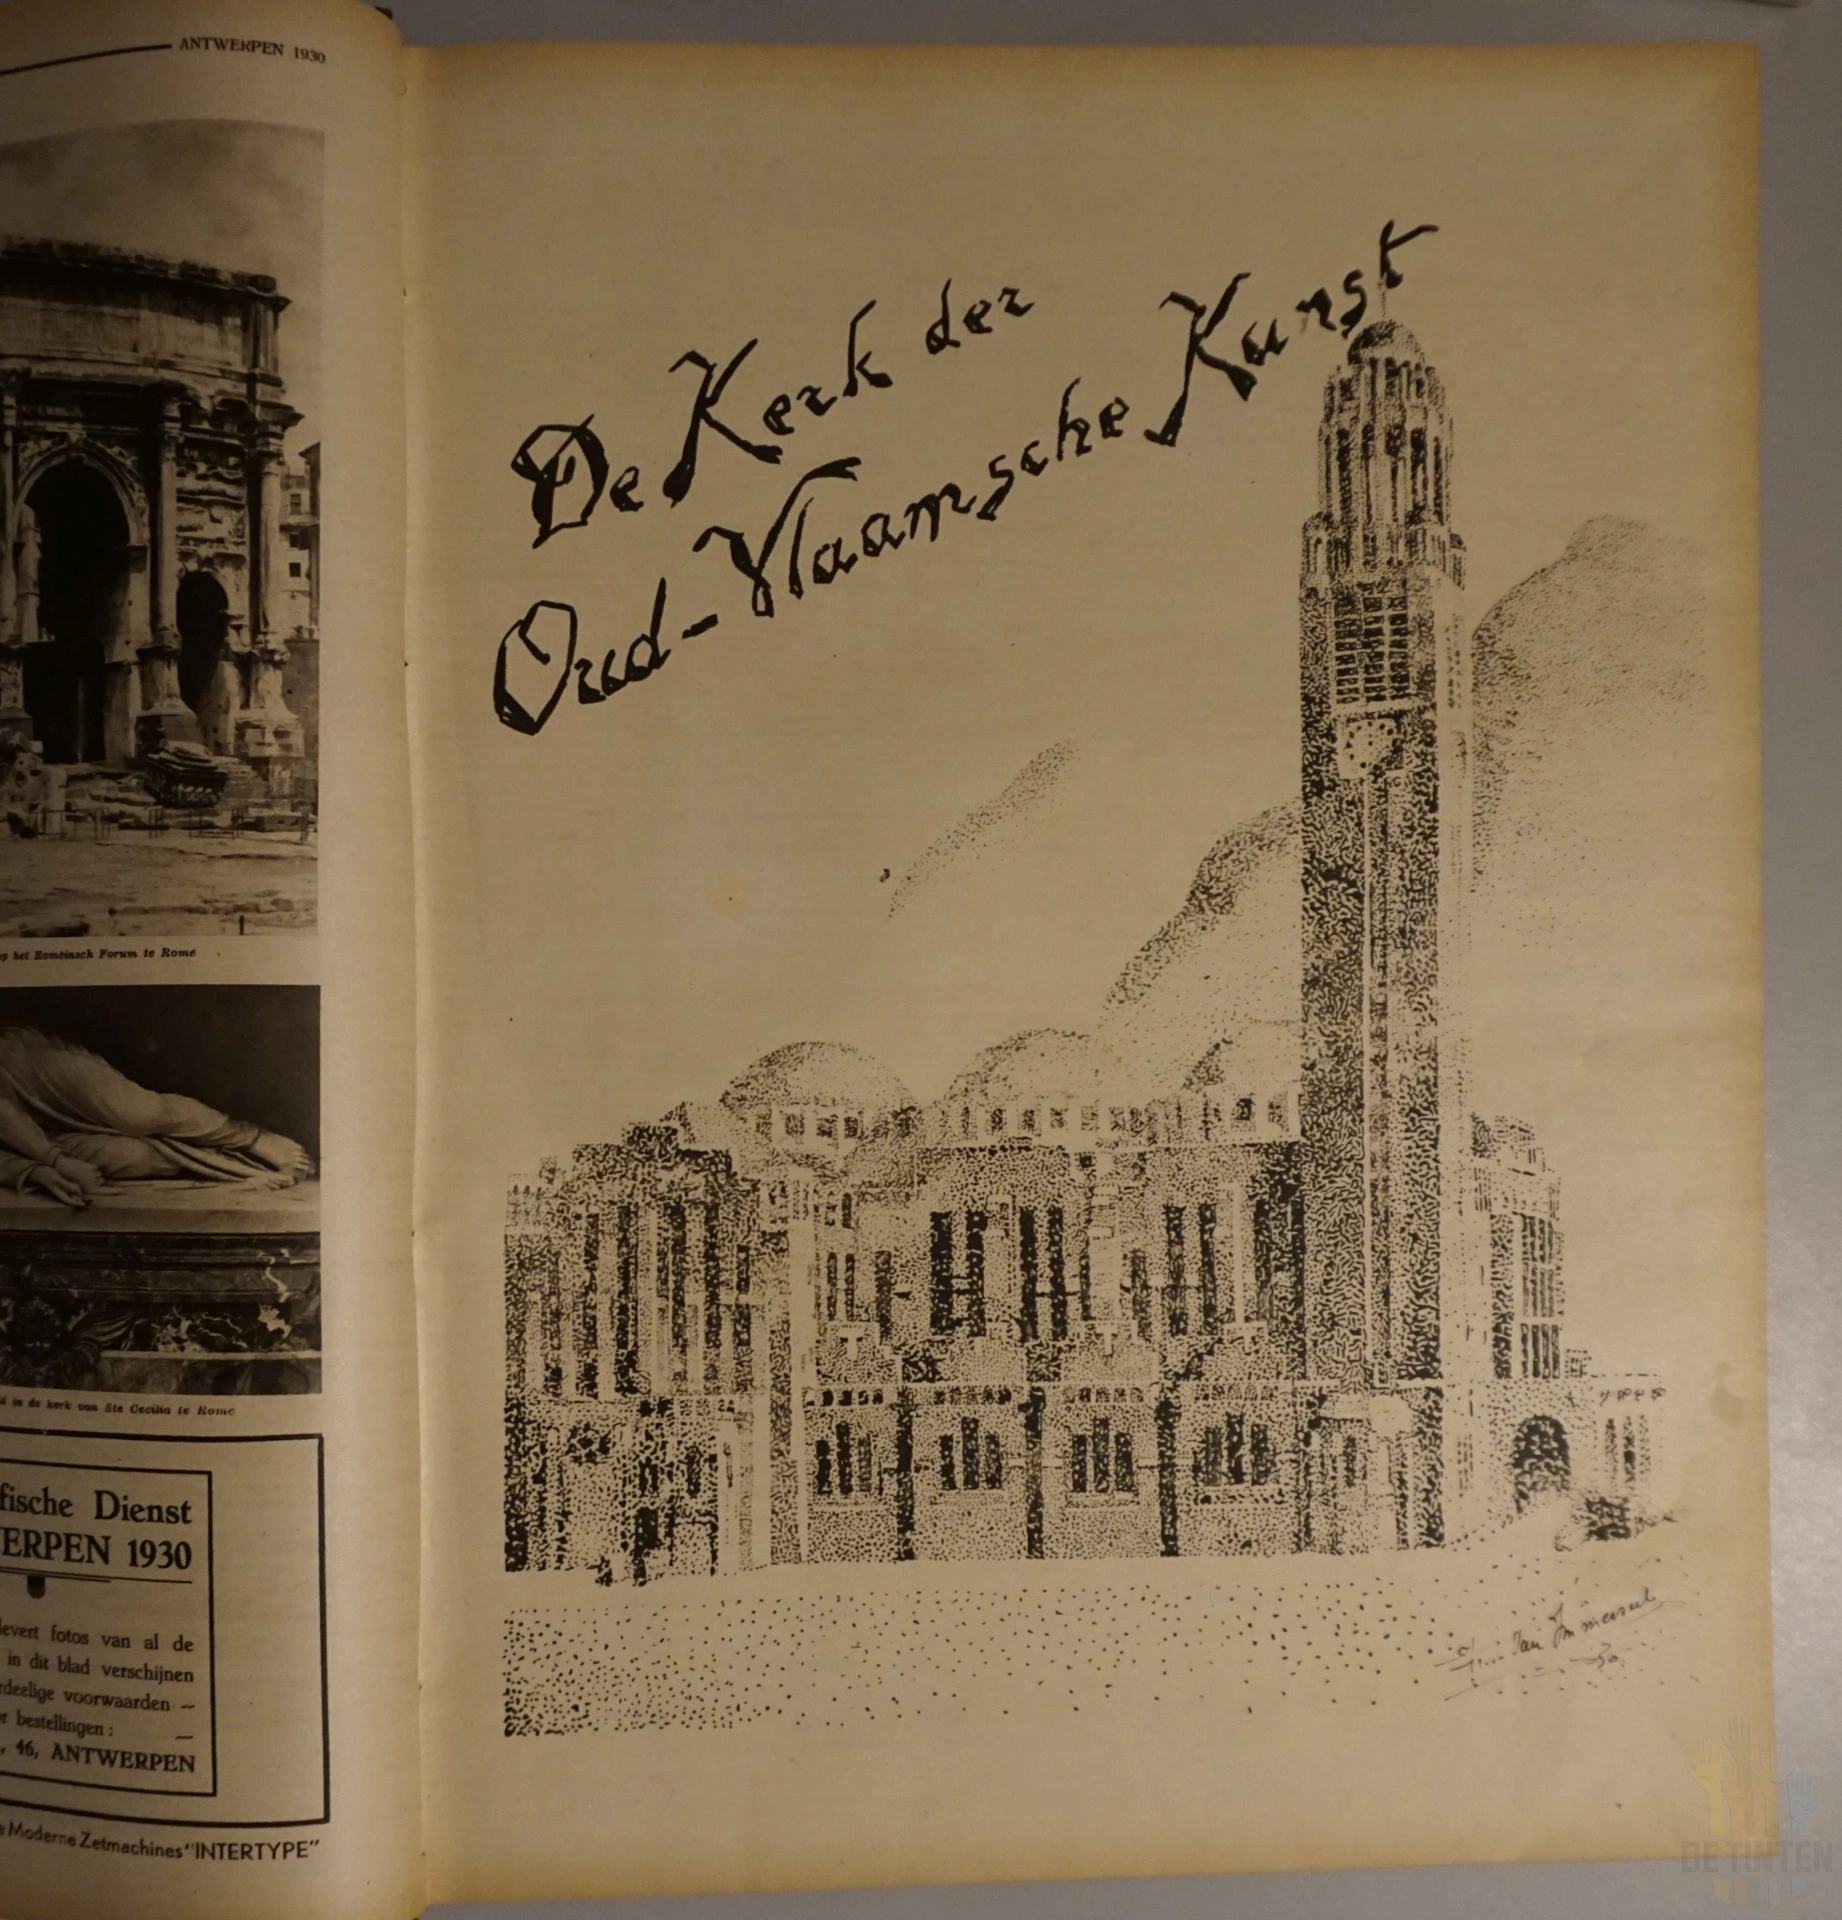 ANTWERPEN 1930
op het Romeinsch Forum te Rome
d in de kerk van Ste Cecilia te Rome
fische Dienst
WERPEN 1930
levert fotos van al de
in dit blad verschijnen
rdeelige voorwaarden —
r bestellingen : —
, 46, ANTWERPEN
e Moderne Zetmachines "INTERTYPE"
De Kerk der
Oud-Vlaamsche Kunst
Van Immerseel
30.
DE TINTEN